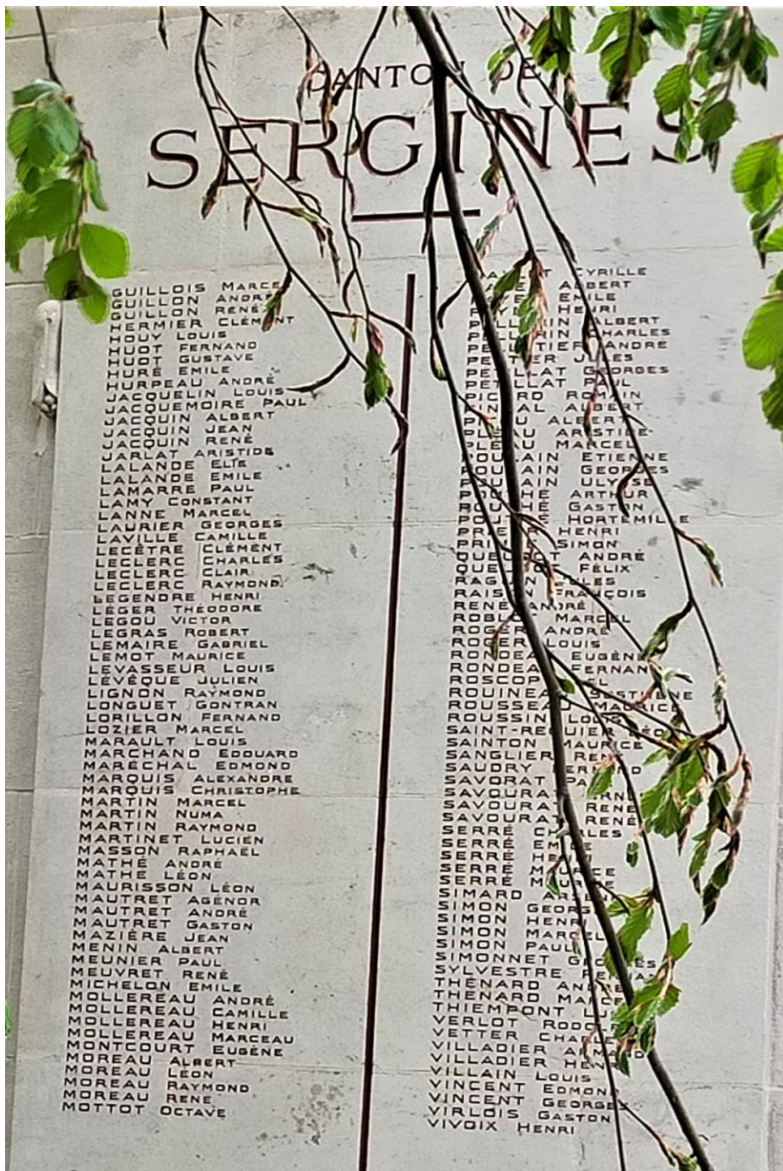 CANTON DE
SERGINES
GUILLOIS MARCEL
GUILLON ANDRÉ
GUILLON RENÉ
HERMIER CLÉMENT
HOUY LOUIS
HUOT FERNAND
HUOT GUSTAVE
HURÉ EMILE
HURPEAU ANDRÉ
JACQUELIN LOUIS
JACQUEMOIRE PAUL
JACQUIN ALBERT
JACQUIN JEAN
JACQUIN RENÉ
JARLAT ARISTIDE
LALANDE ELIE
LALANDE EMILE
LAMARRE PAUL
LAMY CONSTANT
LANNE MARCEL
LAURIER GEORGES
LAVILLE CAMILLE
LECÊTRE CLÉMENT
LECLERC CHARLES
LECLERC CLAIR
LECLERC RAYMOND
LEGENDRE HENRI
LÉGER THÉODORE
LEGOU VICTOR
LEGRAS ROBERT
LEMAIRE GABRIEL
LEMOT MAURICE
LEVASSEUR LOUIS
LÉVÊQUE JULIEN
LIGNON RAYMOND
LONGUET GONTRAN
LORILLON FERNAND
LOZIER MARCEL
MARAULT LOUIS
MARCHAND EDOUARD
MARÉCHAL EDMOND
MARQUIS ALEXANDRE
MARQUIS CHRISTOPHE
MARTIN MARCEL
MARTIN NUMA
MARTIN RAYMOND
MARTINET LUCIEN
MASSON RAPHAËL
MATHÉ ANDRÉ
MATHÉ LÉON
MAURISSON LÉON
MAUTRET AGÉNOR
MAUTRET ANDRÉ
MAUTRET GASTON
MAZIÈRE JEAN
MENIN ALBERT
MEUNIER PAUL
MEUVRET RENÉ
MICHELON EMILE
MOLLEREAU ANDRÉ
MOLLEREAU CAMILLE
MOLLEREAU HENRI
MOLLEREAU MARCEAU
MONTCOURT EUGÈNE
MOREAU ALBERT
MOREAU LÉON
MOREAU RAYMOND
MOREAU RENÉ
MOTTOT OCTAVE
CYRILLE
ALBERT
EMILE
HENRI
ALBERT
CHARLES
PELLETIER ANDRÉ
JULES
PETILLAT GEORGES
PETILLAT PAUL
PICARD ROMAIN
ALBERT
ALBERT
PLEAU ARISTIDE
PLEAU MARCEL
POULAIN ETIENNE
POULAIN GEORGES
POULAIN ULYSSE
ARTHUR
GASTON
HORTEMILLE
HENRI
SIMON
ANDRÉ
FÉLIX
JULES
RAISIN FRANÇOIS
RENÉ ANDRÉ
MARCEL
ROGER ANDRÉ
ROGER LOUIS
RONDEAU EUGÈNE
RONDEAU FERNAND
ROUINEAU
ROUSSEAU MAURICE
ROUSSIN LOUIS
SAINT-REQUIER LÉON
SAINTON MAURICE
SANGLIER RENÉ
SAUDRY
SAVORAT
SAVOURAT
SAVOURAT RENÉ
SAVOURAT RENÉ
SERRÉ CHARLES
SERRÉ EMILE
SERRÉ HENRI
SERRÉ MAURICE
SERRÉ MAURICE
SIMARD
SIMON GEORGES
SIMON HENRI
SIMON MARCEL
SIMON PAUL
SIMONNET GEORGES
SYLVESTRE
THÉNARD ANDRÉ
THÉNARD MARCEL
THIEMPONT
VERLOT RODOLPHE
VETTER CHARLES
VILLADIER ARMAND
VILLADIER HENRI
VILLAIN LOUIS
VINCENT EDMOND
VINCENT GEORGES
VIRLOIS GASTON
VIVOIX HENRI